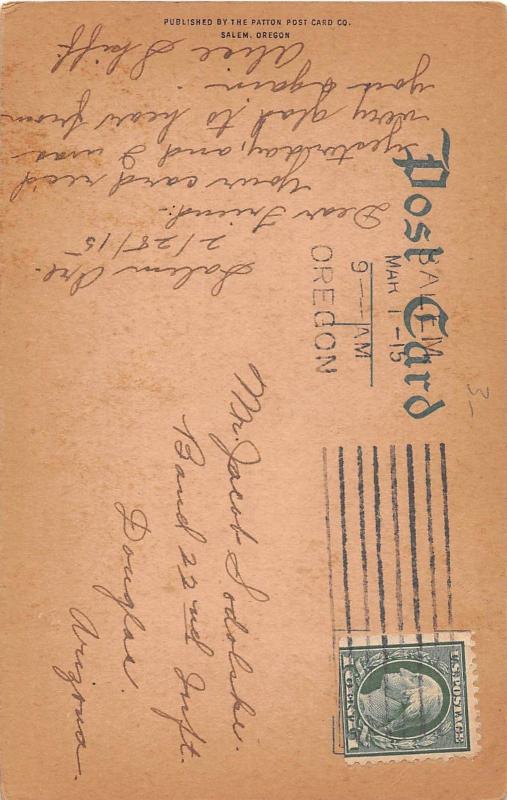 PUBLISHED BY THE PATTON POST CARD CO.
SALEM, OREGON
Post Card
SALEM
MAR 1-15
9—AM
OREGON
U.S. POSTAGE
1 CENT 1
3-
Salem Ore.
2/28/15
Dear Friend:-
Your card rec'd
yesterday, and I was
very glad to hear from
you again.
Alice Shiff
Mr. Jacob Sodolskie.
Band 22nd Inft.
Douglas.
Arizona.